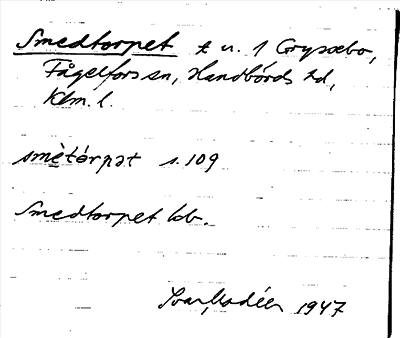 Smedtorpet t u. 1 Grysebo,
Fågelfors sn, Handbörds hd,
Klm. l.
smètórpət s. 109
Smedtorpet kb.
1947